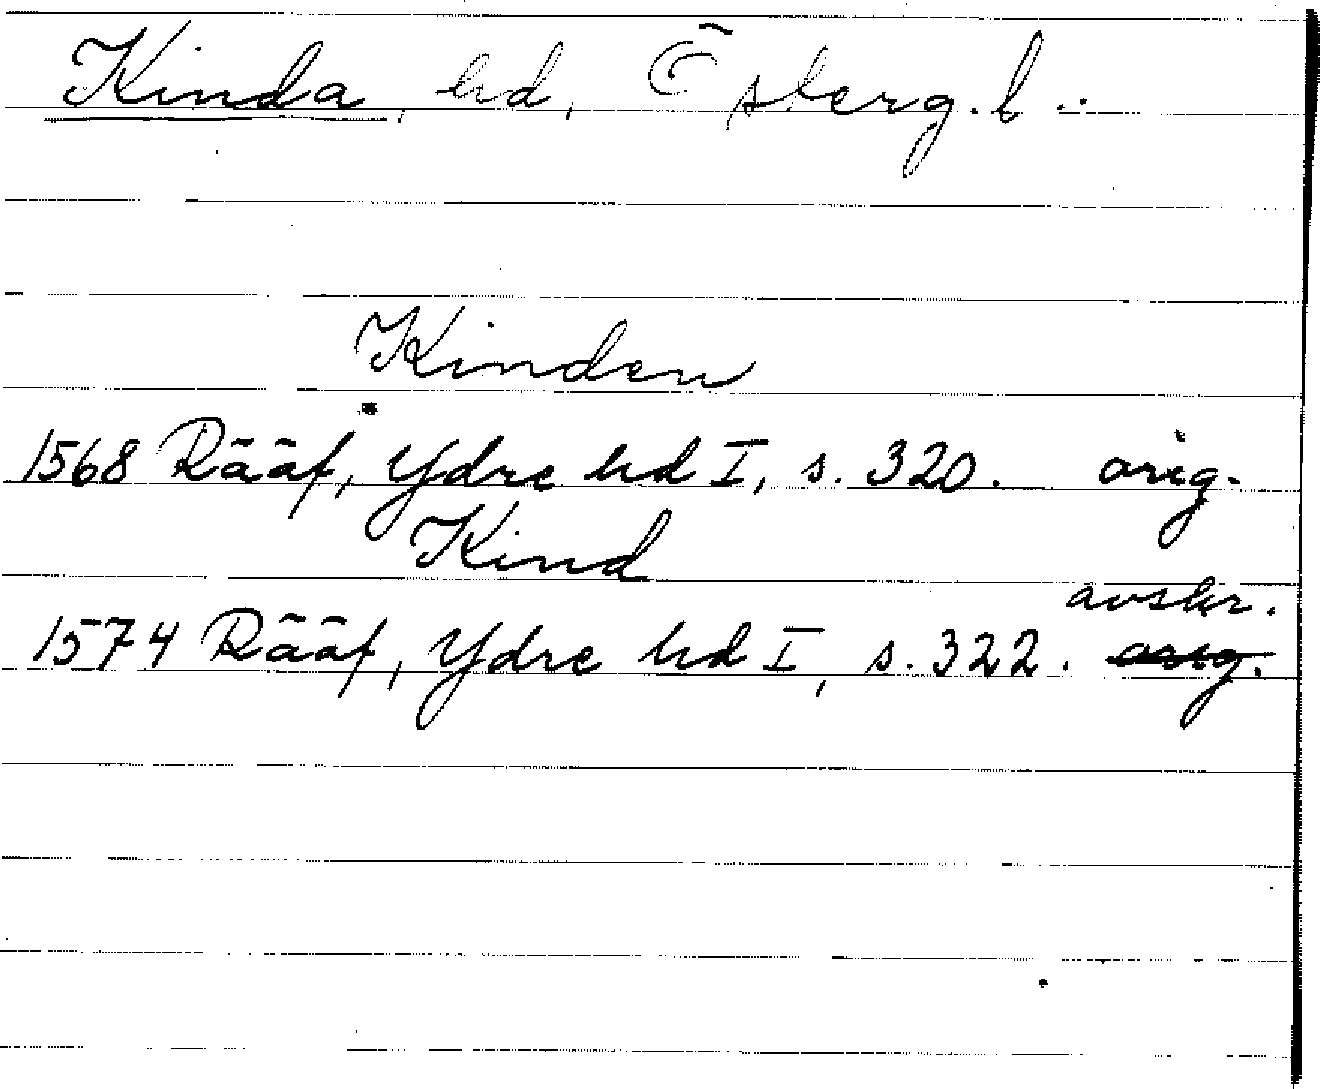 Kinda, hd, Österg. l.
Kinden
1568 Rääf, Ydre hd I, s. 320. orig.
Kind
avskr.
1574 Rääf, Ydre hd I, s. 322. orig.